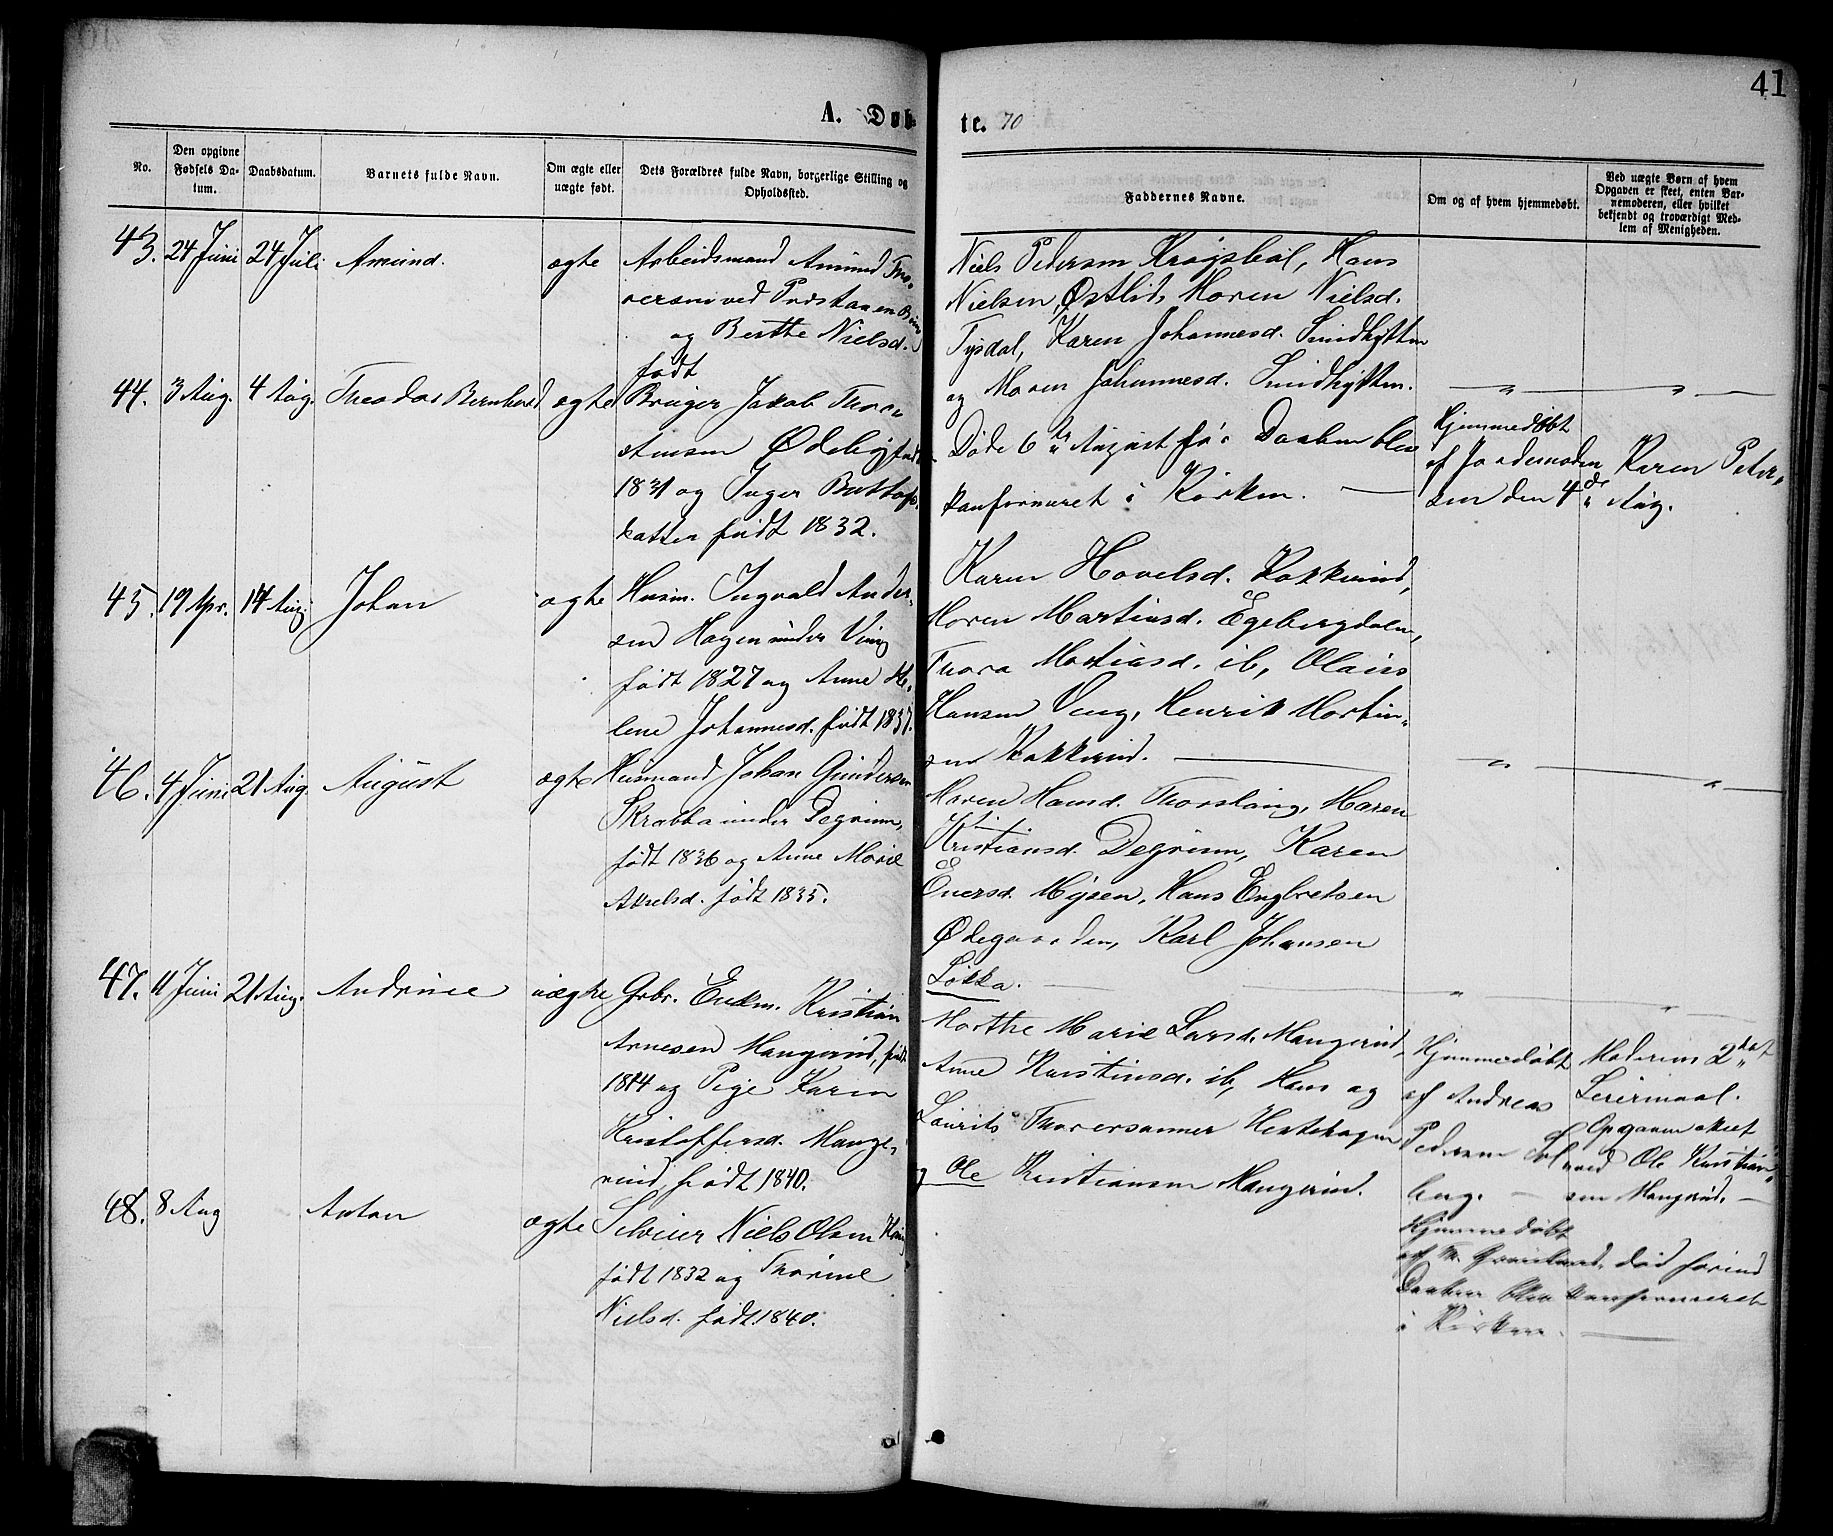 41
A. Døb-
te. 70
No.
Den opgivne
Fødsels Da-
tum.
Daabsdatum.
Barnets fulde Navn.
Om ægte eller
uægte født.
Dets Forældres fulde Navn, borgerlige Stilling og
Opholdssted.
Faddernes Navne.
Om og af hvem hjemmedøbt.
Ved uægte Børn af hvem
Opgaven er skeet, enten Bar-
nemoderen, eller hvilket
bekjendt og troværdigt Med-
lem af Menigheden.
43. 24 Juni 24 Juli Amund. ægte
Arbeidsmand Amund Tho-
resen ved
og Berthe Nielsd.
født
Niels Pedersen Krogsbøl, Hans
Nielsen Østlid, Maren Nielsd.
Tysdal, Karen Johannesd. Smidhytten
og Maren Johannesd. Smidhytten.
44. 3 Aug. 4 Aug. Theodor Bernhard ægte
Bruger Jakob Thor-
stensen Ødeby født
1831 og Inger
datter født 1832.
Døde 6te August før Daaben blev
konfirmeret i Kirken. —
Hjemmedøbt
af Jordemoder Karen Peter-
sen den 4de Aug.
45. 19 Apr. 14 Aug. Johan ægte
Husm. Ingvald Ander-
sen Hagen under Veng
født 1827 og Anne He-
lene Johannesd. født 1837.
Karen Hovelsd. Kokkerud,
Maren Martinsd. Egebergdalen,
Thora Martinsd. ib, Olaus
Hansen Veng, Henrik Martin-
sen Kokkerud. —
46. 4 Juni 21 Aug. August ægte
Husmand Johan Gundersen
Skrabba under Degrum,
født 1836 og Anne Marie
Akselsd. født 1835.
Maren Hansd. Thorslang, Maren
Kristiansd. Degrum, Karen
Evensd. Mysen, Hans Engbretsen
Ødegaarden, Karl Johansen
Løkka.
47. 11 Juni 21 Aug. Andrine uægte
Grbr. Enkm. Kristian
Arnesen Mangerud, født
1814 og Pige Karen
Kristoffersd. Mange-
rud, født 1840.
Marthe Marie Larsd. Mangerud,
Anne Kristiansd. ib, Hans og
Laurits Thoresønner Hestehagen
og Ole Kristiansen Mangerud.
Hjemmedøbt
af Andreas
Pedersen Sol-
berg. —
Moderens 2det
Leiermaal.
Opgaven skeet
ved Ole Kristian-
sen Mangerud. —
48. 8 Aug Anton ægte
Selveier Niels Olsen
født 1832 og Thorine
Nielsd. født 1840.
Hjemmedøbt
af Th. død forind
Daaben blev konfirmeret
i Kirken. —